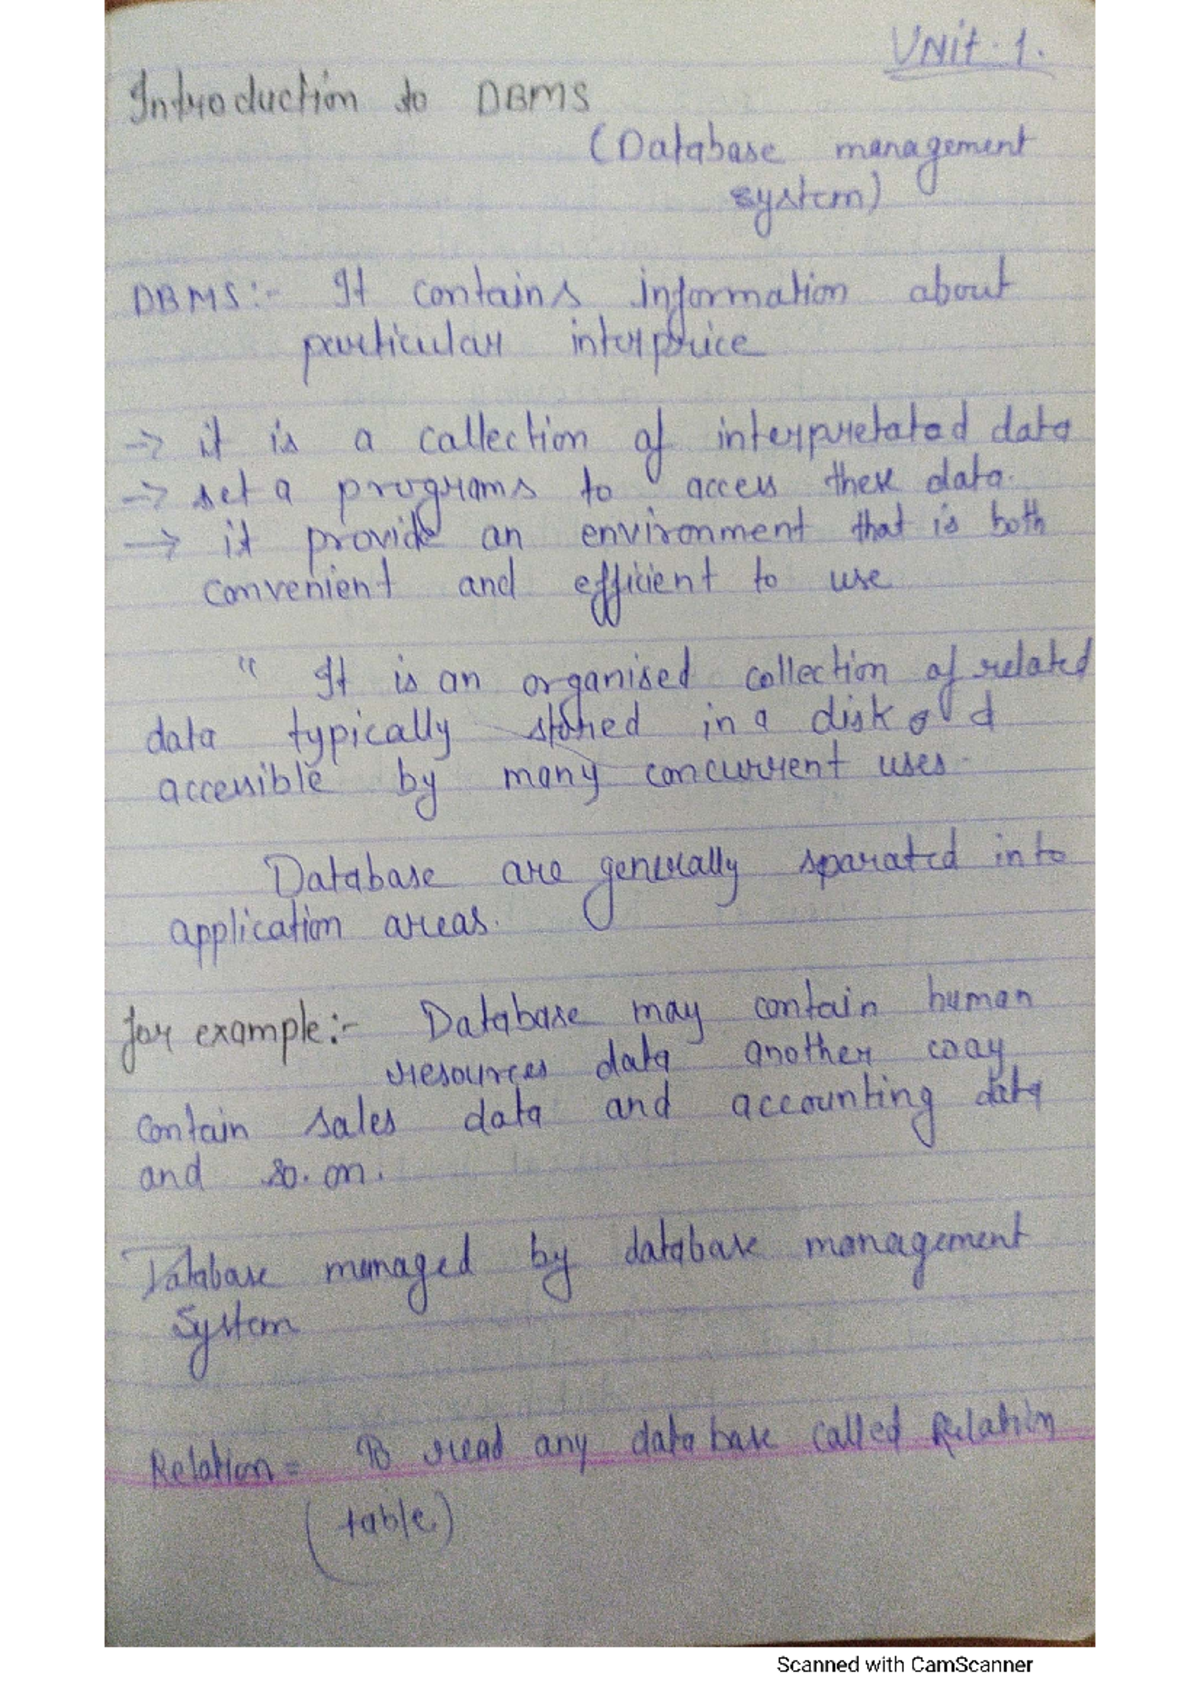 Unit. 1.
Introduction to DBMS
(Database management
system)
DBMS:- It contains information about
particular interprice
-> it is a collection of interpretated data
-> set a programs to access these data.
-> it provide an environment that is both
convenient and efficient to use
" It is an organised collection of related
data typically stored in a disk
accessible by many concurrent uses.
Database are generally sparated into
application areas.
for example:- Database may contain human
resources data another
contain sales data and accounting data
and so. on.
Database managed by database management
System
Relation = read any database called Relation
(table)
Scanned with CamScanner